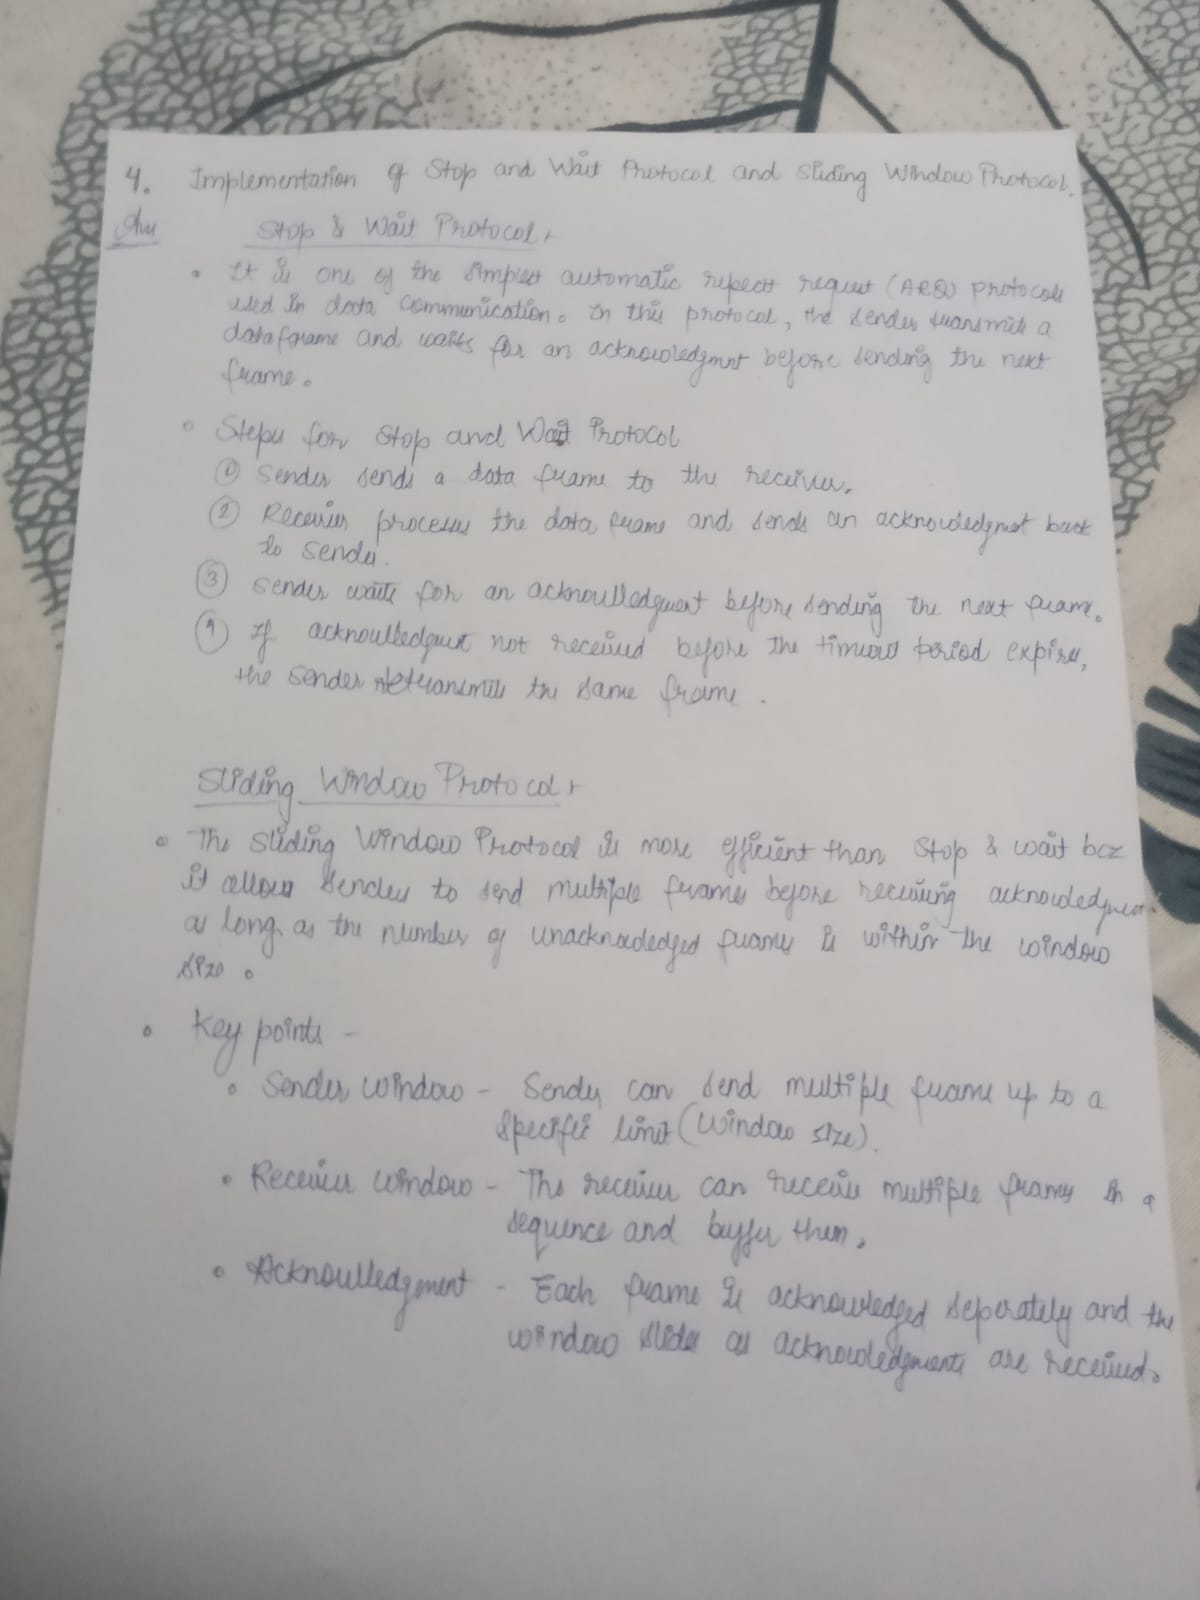 4. Implementation of Stop and Wait Protocol and Sliding Window Protocol.
Ans Stop & Wait Protocol
• It is one of the simplest automatic repeat request (ARQ) protocols
used in data communication. In this protocol, the sender transmits a
dataframe and waits for an acknowledgmnt before sending the next
frame.
• Steps for Stop and Wait Protocol
① Sender sends a data frame to the receiver.
② Receiver processes the data frame and sends an acknowledgment back
to sender.
③ Sender waits for an acknowlledgment before sending the next frame.
④ If acknoulledgment not received before the timeout period expires,
the sender retransmits the same frame.
Sliding Window Protocol
• The Sliding Window Protocol is more efficient than Stop & wait bcz
it allows sender to send multiple frames before receiving acknowledgment
as long as the number of unacknowledged frames is within the window
size.
• Key points -
• Sender window - Sender can send multiple frame up to a
specific limit (Window size).
• Receiver window - The receiver can receive multiple frames in a
sequence and buffer them.
• Acknoulledgment - Each frame is acknowledged seperately and the
window slides as acknowledgments are received.